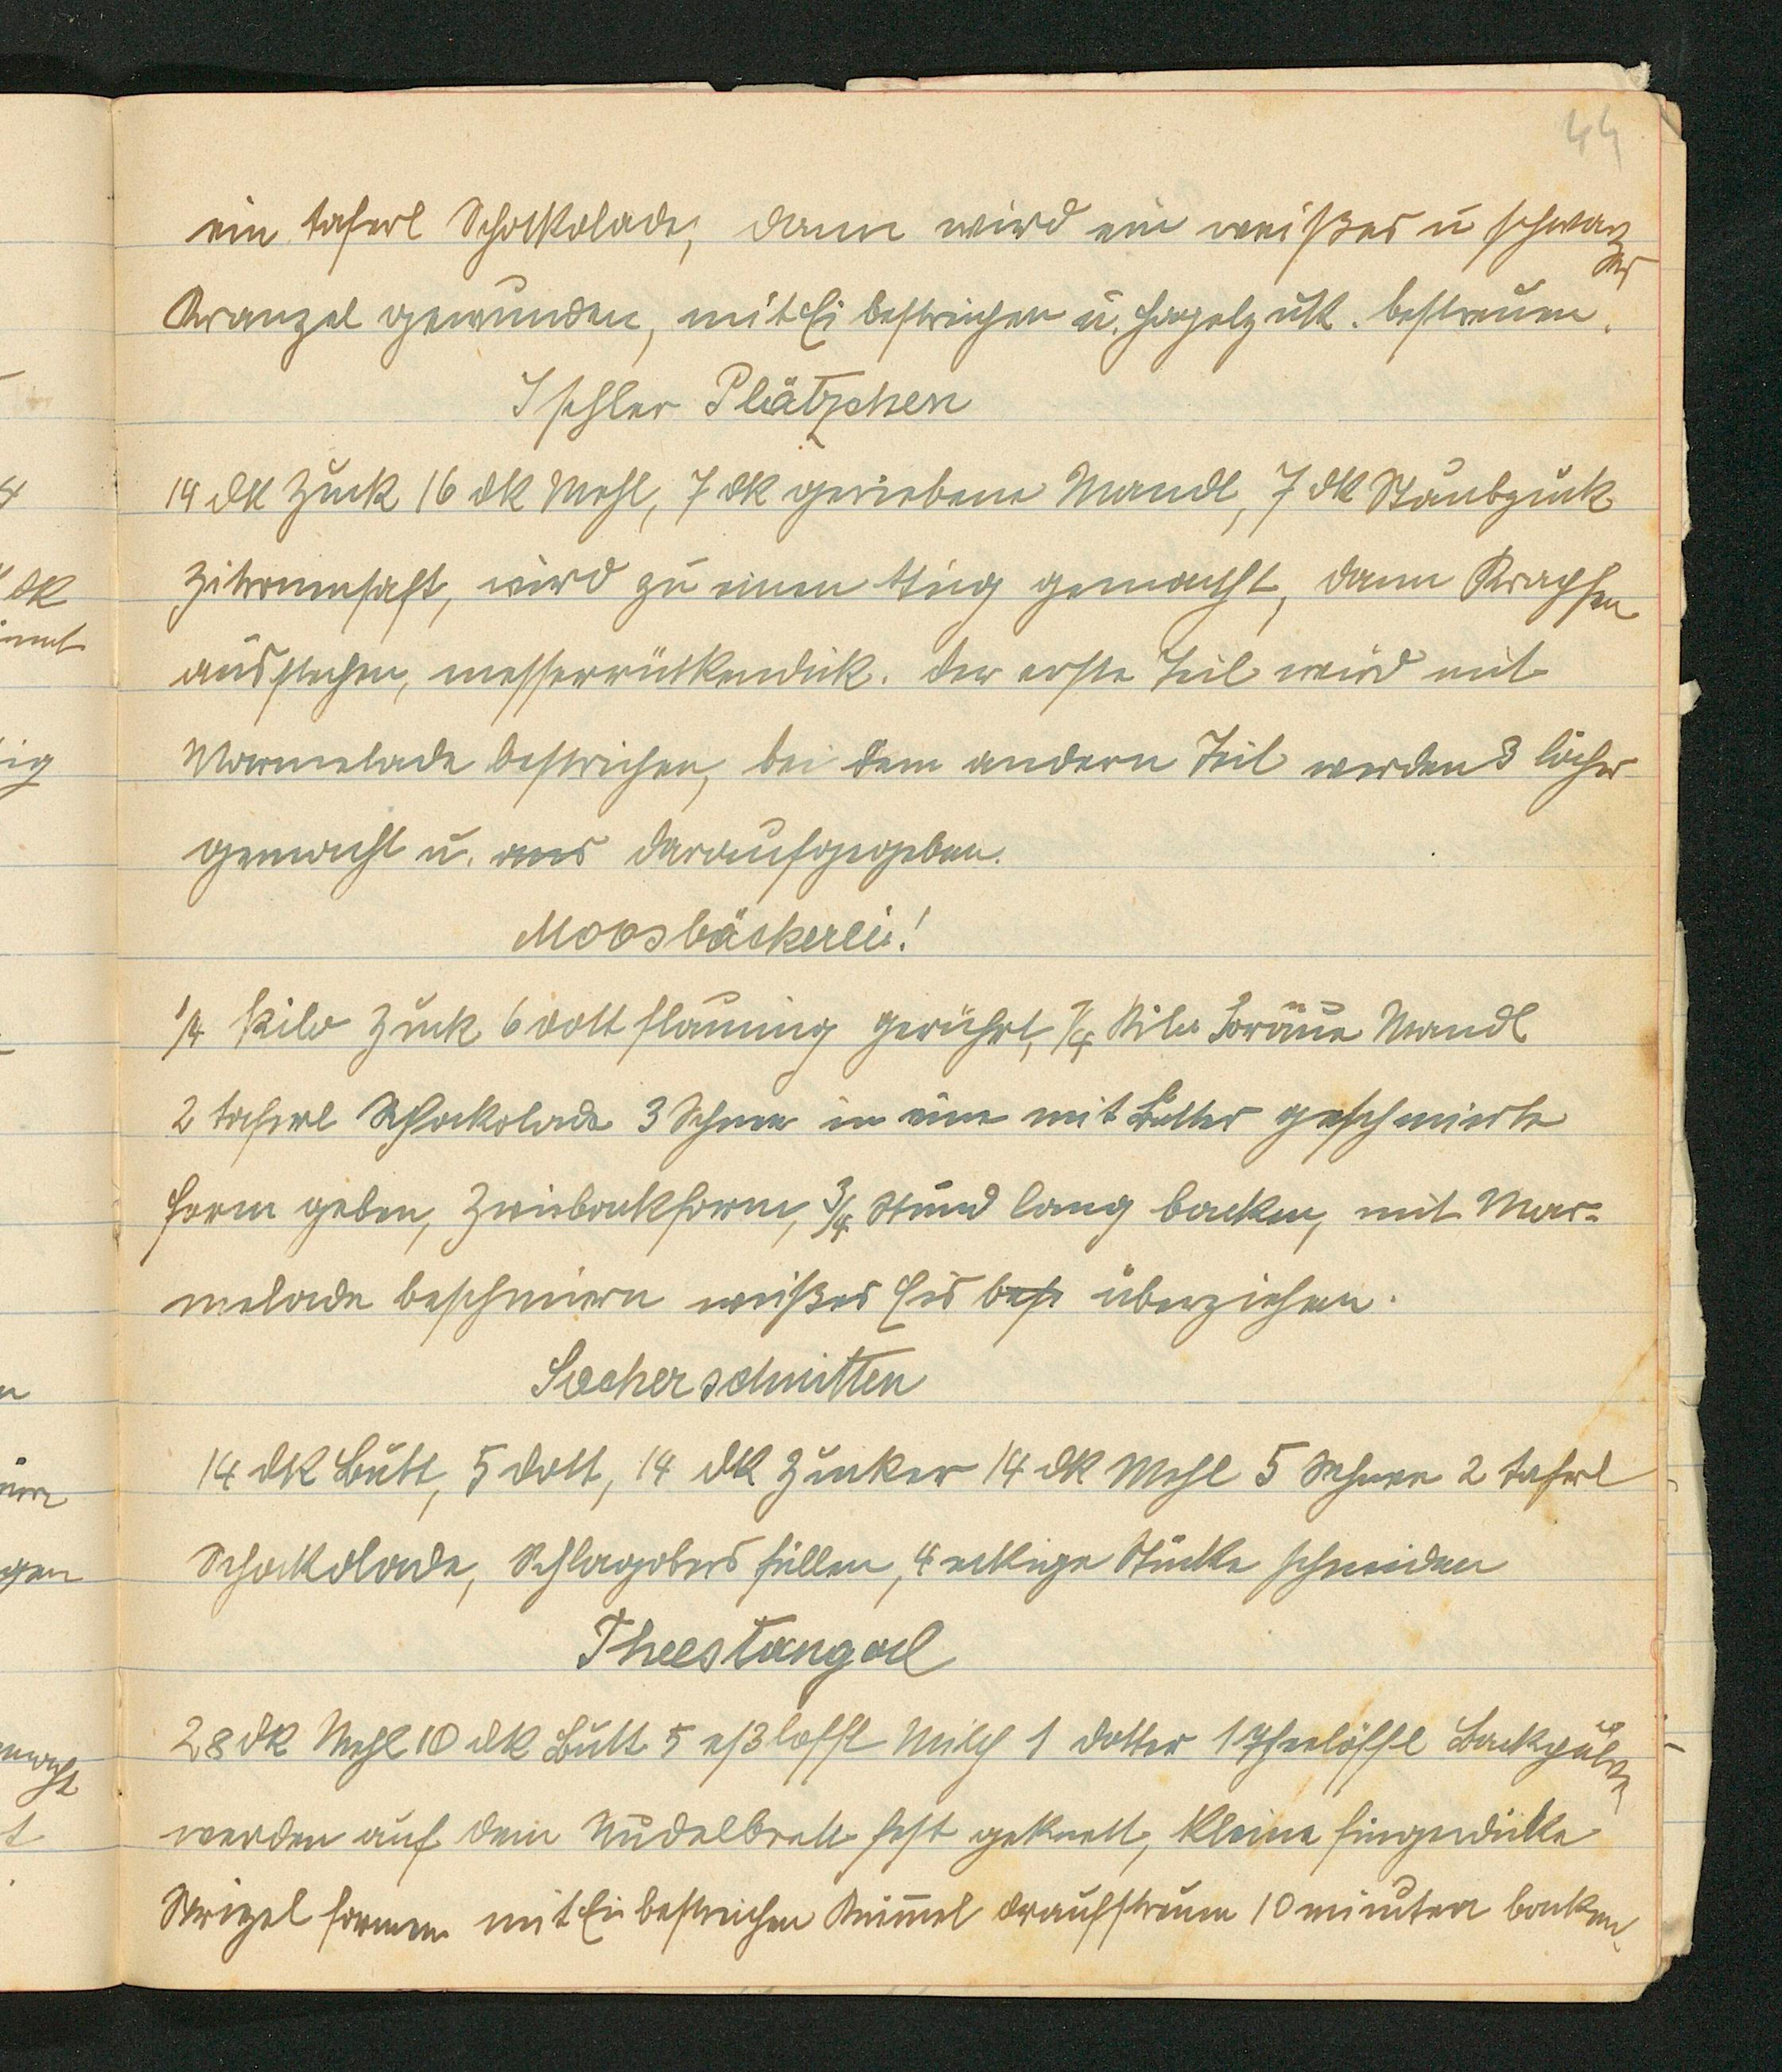 44
ein taferl Schokkolade, dann wird ein weißes u schwarzes
Kranzel gewunden, mit Ei bestrichen u. Hagelzukk. bestreuen.
Ischler Plätzchen
14 dk Zuck 16 dk Mehl, 7 dk geriebene Mandl, 7 dk Staubzuck
Zitronensaft, wird zu einen Teig gemacht, dann Krapfen
ausstechen, messerrückendick. der erste Teil wird mit
Marmelade bestrichen, bei dem andern Teil werden 3 löcher
gemacht u. daraufgegeben.
Moosbäckerei!
1/4 Kilo Zuck 6 dott flaumig gerührt, 1/4 Kilo Mandl
2 taferl Schockolade 3 Schnee in eine mit Butter geschmierte
form geben, Zwiebackform, 3/4 Stund lang backen, mit Mar=
melade beschmieren weißes Eis überziehen.
Sacherschnitten
14 dk Butt, 5 dott, 14 dk Zucker 14 dk Mehl 5 Schnee 2 taferl
Schockolade, Schlagobers füllen, 4 eckige Stücke schneiden
Theestangerl
28 dk Mehl 10 dk Butt 5 eßlöffl Milch 1 dotter 1 Theelöffl Backpulver
werden auf dem Nudelbrett fest geknett, kleine fingerdicke
Strizel formen mit Ei bestreichen Kümmel draufstreuen 10 minuten backen.